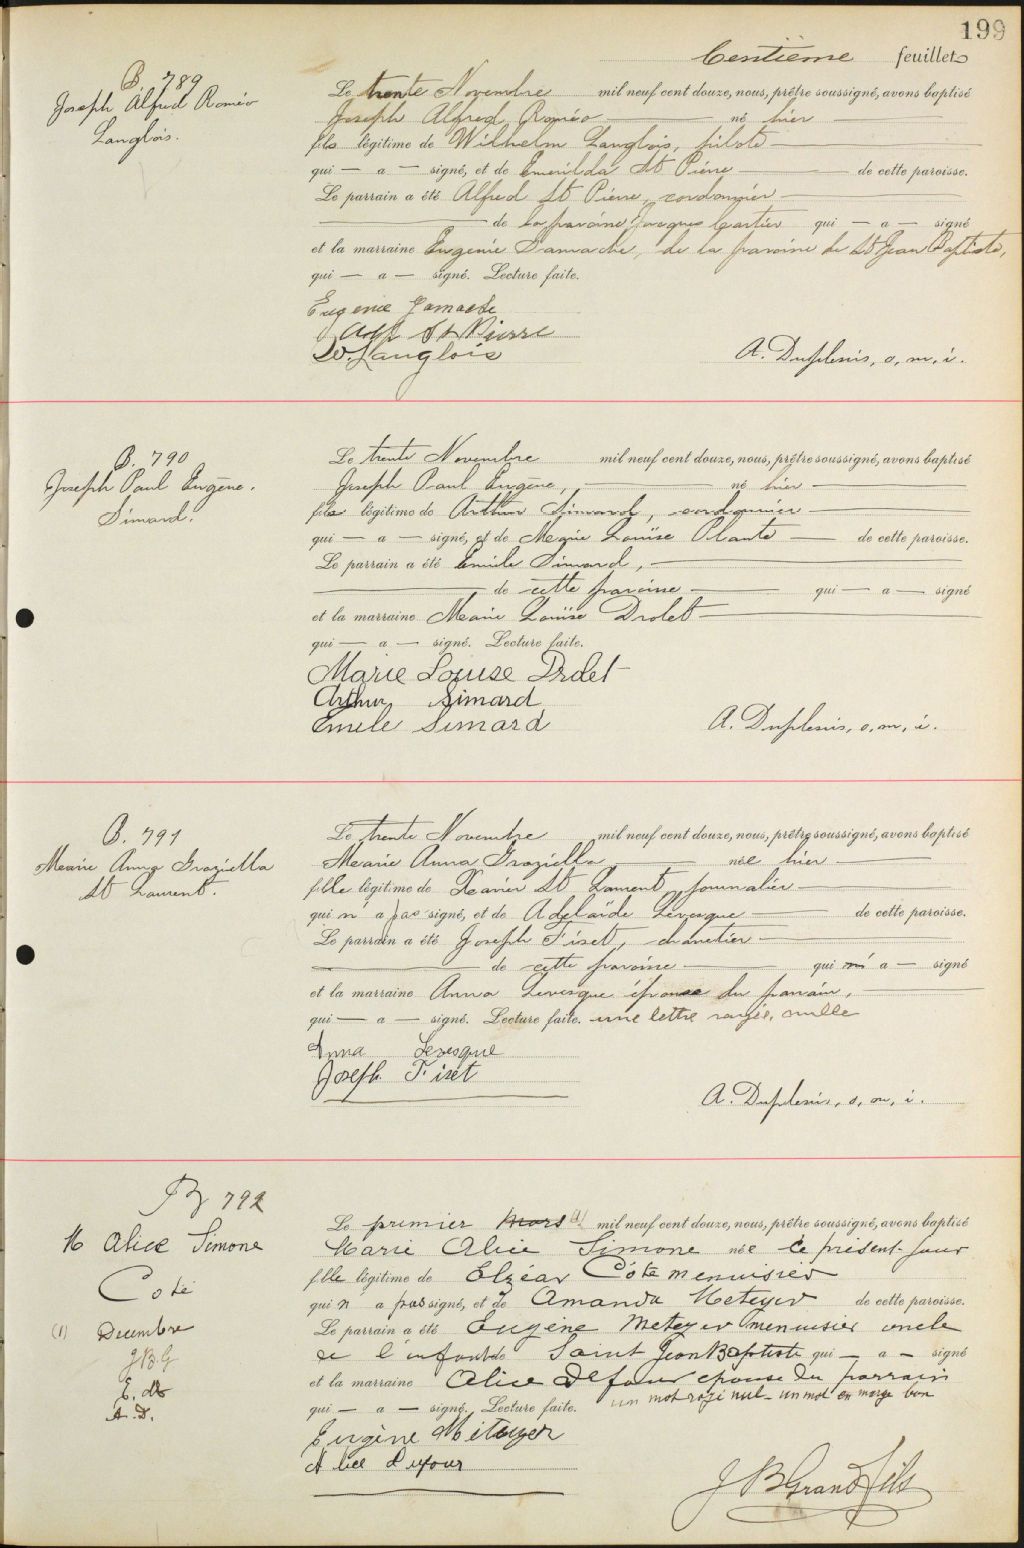 199
Centième feuillet
B. 789
Joseph Alfred Roméo
Langlois.
Le trente Novembre mil neuf cent douze, nous, prêtre soussigné, avons baptisé
Joseph Alfred Roméo né hier
fils légitime de Wilhelm Langlois, pilote
qui — a — signé, et de Emérilda St Pierre de cette paroisse.
Le parrain a été Alfred St Pierre, cordonnier
de la paroisse Jacques Cartier qui — a — signé
et la marraine Eugenie Gamache, de la paroisse de St Jean Baptiste,
qui — a — signé. Lecture faite.
Eugenie Gamache
Alf St Pierre
W. Langlois
A. Duplessis, o, m, i.
B. 790
Joseph Paul Eugène.
Simard.
Le trente Novembre mil neuf cent douze, nous, prêtre soussigné, avons baptisé
Joseph Paul Eugène, né hier
fils légitime de Arthur Simard, cordonnier
qui — a — signé, et de Marie Louïse Plante de cette paroisse.
Le parrain a été Emile Simard,
de cette paroisse qui — a — signé
et la marraine Marie Louïse Drolet
qui — a — signé. Lecture faite.
Marie Louise Drolet
Arthur Simard
Emile Simard
A. Duplessis, o, m, i.
B. 791
Marie Anna Graziella
St Laurent.
Le trente Novembre mil neuf cent douze, nous, prêtre soussigné, avons baptisé
Marie Anna Graziella née hier
fille légitime de Xavier St Laurent, journalier
qui n'a pas signé, et de Adelaïde Lévesque de cette paroisse.
Le parrain a été Joseph Fiset, charretier
de cette paroisse qui n' a — signé
et la marraine Anna Lévesque épouse du parrain,
qui — a — signé. Lecture faite. une lettre rayée, nulle
Anna Levesque
Joseph Fiset
A. Duplessis, o, m, i.
B 792
M Alice Simone
Coté
(1) Decembre
J B. G
E. M
A. D.
Le premier Mars (1) mil neuf cent douze, nous, prêtre soussigné, avons baptisé
Marie Alice Simone née ce présent jour
fille légitime de Elzéar Côté menuisier
qui n' a pas signé, et de Amanda Meteyer de cette paroisse.
Le parrain a été Eugène Meteyer menuisier oncle
de l'enfant de Saint Jean Baptiste qui — a — signé
et la marraine Alice Defour epouse du parrain
qui — a — signé. Lecture faite. un mot rayé nul - un mot en marge bon
Eugène Méteyer
Alice Dufour
J B Grandfils